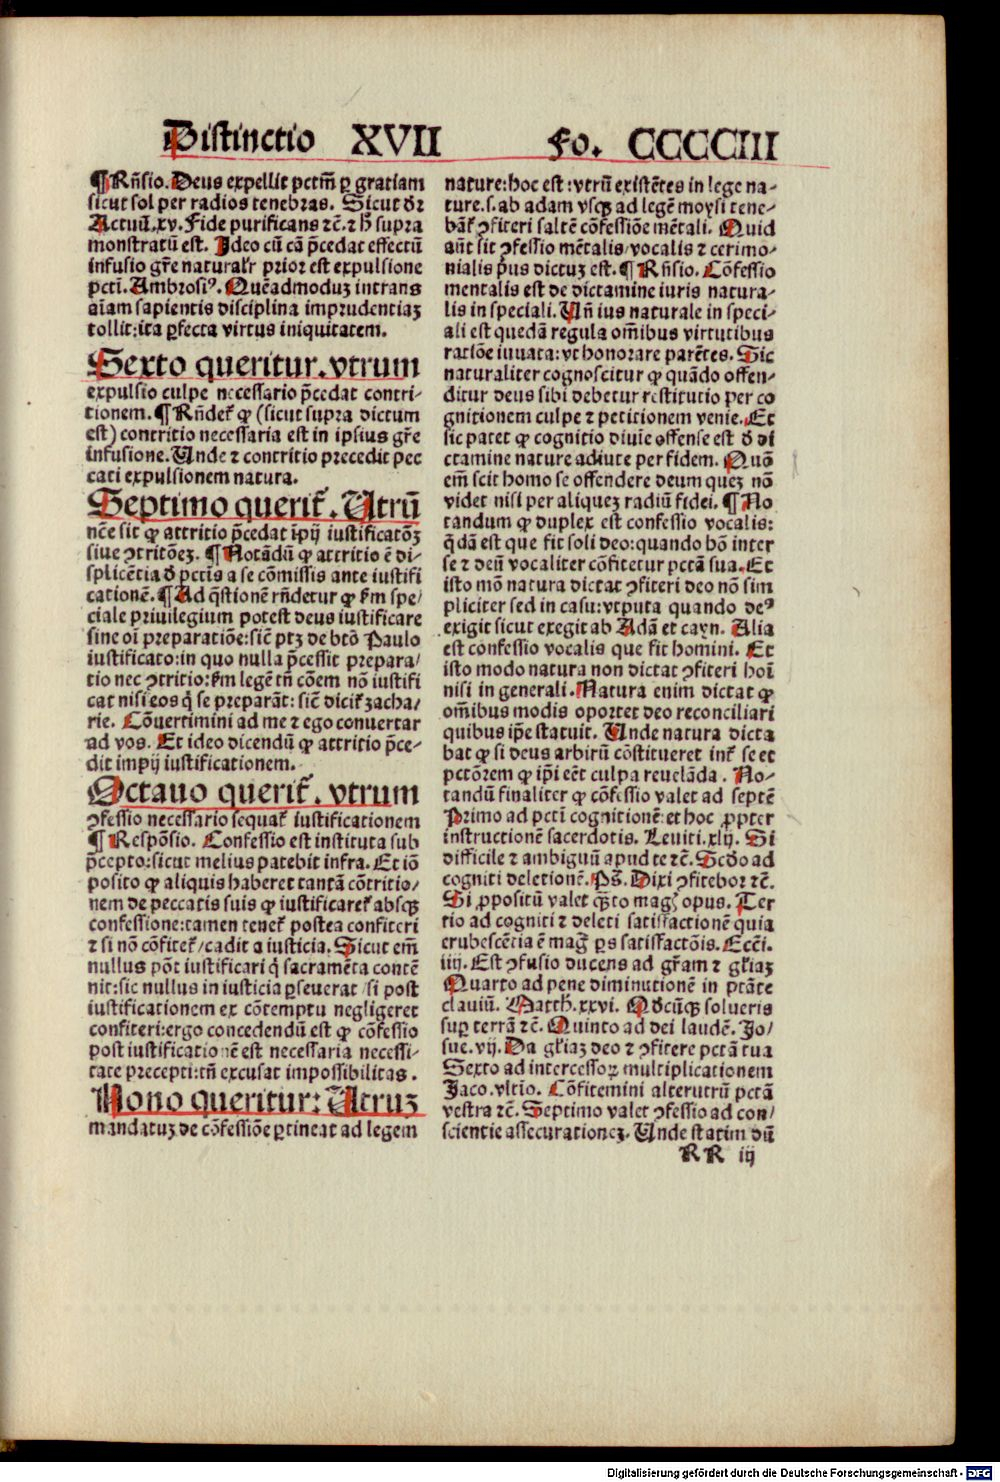 Distinctio XVII Fo. CCCCCIII
¶ Rñsio. Deus expellit pctm̄ ꝑ gratiam
sicut sol per radios tenebras. Sicut dr̄
Actuū.xv. Fide purificans ⁊c̄. ⁊ h̄ supra
monstratū est. Ideo cū cā p̄cedat effectū
infusio gr̄e naturalr̄ prior est expulsione
pcti. Ambrosiꝰ. Quēadmoduꝫ intrans
aīam sapientis disciplina imprudentiaꝫ
tollit:ita ꝑfecta virtus iniquitatem.
Sexto queritur. vtrum
expulsio culpe necessario p̄cedat contri-
tionem. ¶ Rñder̄ ꝙ (sicut supra dictum
est) contritio necessaria est in ipsius gr̄e
infusione. Unde ⁊ contritio precedit pec
cati expulsionem natura.
Septimo querit̄. Utrū
nēe sit ꝙ attritio p̄cedat īpij iustificatōꝫ
siue ꝯtritōeꝫ. ¶ Notādū ꝙ attritio ē di-
splicētia d̄ pctīs a se cōmissis ante iustifi
cationē. ¶ Ad q̄stionē rñdetur ꝙ fm̄ spe/
ciale priuilegium potest deus iustificare
sine oī preparatiōe: sic̄ ptꝫ de btō Paulo
iustificato: in quo nulla p̄cessit prepara/
tio nec ꝯtritio: fm̄ legē tñ cōem nō iustifi
cat nisi eos q̄ se preparāt: sic̄ dicit̄ zacha/
rie. Cōuertimini ad me ⁊ ego conuertar
ad vos. Et ideo dicendū ꝙ attritio p̄ce-
dit impij iustificationem.
Octauo querit̄. vtrum
ꝯfessio necessario sequat̄ iustificationem
¶ Respōsio. Confessio est instituta sub
p̄cepto: sicut melius patebit infra. Et iō
posito ꝙ aliquis haberet tantā cōtritio/
nem de peccatis suis ꝙ iustificaret̄ absqꝫ
confessione: tamen tenet̄ postea confiteri
⁊ si nō cōfitet̄/cadit a iusticia. Sicut em̄
nullus pōt iustificari q̄ sacramēta contē
nit: sic nullus in iusticia ꝑseuerat/si post
iustificationem ex cōtemptu negligeret
confiteri: ergo concedendū est ꝙ cōfessio
post iustificationē est necessaria necessi-
tate precepti: tñ excusat impossibilitas.
Nono queritur: Utruꝫ
mandatuꝫ de cōfessiōe ꝑtineat ad legem
nature: hoc est: vtrū existētes in lege na-
ture.s. ab adam vsqꝫ ad legē moysi tene-
bāt̄ ꝯfiteri saltē cōfessiōe mētali. Quid
aūt sit ꝯfessio mētalis/vocalis ⁊ cerimo-
nialis p̄us dictuꝫ est. ¶ Rñsio. Cōfessio
mentalis est de dictamine iuris natura-
lis in speciali. Uñ ius naturale in speci-
ali est quedā regula om̄ibus virtutibus
ratiōe iuuata: vt honorare parētes. Sic
naturaliter cognoscitur ꝙ quādo offen-
ditur deus sibi debetur restitutio per co
gnitionem culpe ⁊ petitionem venie. Et
sic patet ꝙ cognitio diuie offense est d̄ di
ctamine nature adiute per fidem. Quō
em̄ scit homo se offendere deum queꝫ nō
videt nisi per aliqueꝫ radiū fidei. ¶ No
tandum ꝙ duplex est confessio vocalis:
q̄dā est que fit soli deo: quando hō inter
se ⁊ deū vocaliter cōfitetur pctā sua. Et
isto mō natura dictat ꝯfiteri deo nō sim
pliciter sed in casu: vtputa quando deꝰ
exigit sicut exegit ab Adā et cayn. Alia
est confessio vocalis que fit homini. Et
isto modo natura non dictat ꝯfiteri hoī
nisi in generali. Natura enim dictat ꝙ
om̄ibus modis oportet deo reconciliari
quibus ip̄e statuit. Unde natura dicta
bat ꝙ si deus arbitrū cōstitueret int̄ se et
pctōrem ꝙ ip̄i eēt culpa reuelāda. No-
tandū finaliter ꝙ cōfessio valet ad septē
Primo ad pcti cognitionē: et hoc ꝓpter
instructionē sacerdotis. Leuiti.xlij. Si
difficile ⁊ ambiguū apud te ⁊c̄. Scdo ad
cogniti deletionē. Ps̄. Dixi ꝯfitebor ⁊c̄.
Si ꝓpositū valet q̄̄to magꝭ opus. Ter
tio ad cogniti ⁊ deleti satisfactionē quia
erubescētia ē maḡ ꝑs satisfactōis. Ecc̄i.
iiij. Est ꝯfusio ducens ad gr̄am ⁊ gl̄iaꝫ
Quarto ad pene diminutionē in ptāte
clauiū. Matth̄.xxvi. Qd̄cūqꝫ solueris
suꝑ terrā ⁊c̄. Quinto ad dei laudē. Jo/
sue.vij. Da gl̄iaꝫ deo ⁊ ꝯfitere pctā tua
Sexto ad intercessoꝝ multiplicationem
Jaco.vltīo. Cōfitemini alterutrū pctā
vestra ⁊c̄. Septimo valet ꝯfessio ad con/
scientie assecurationeꝫ. Unde statim dū
RR iij
Digitalisierung gefördert durch die Deutsche Forschungsgemeinschaft - DFG